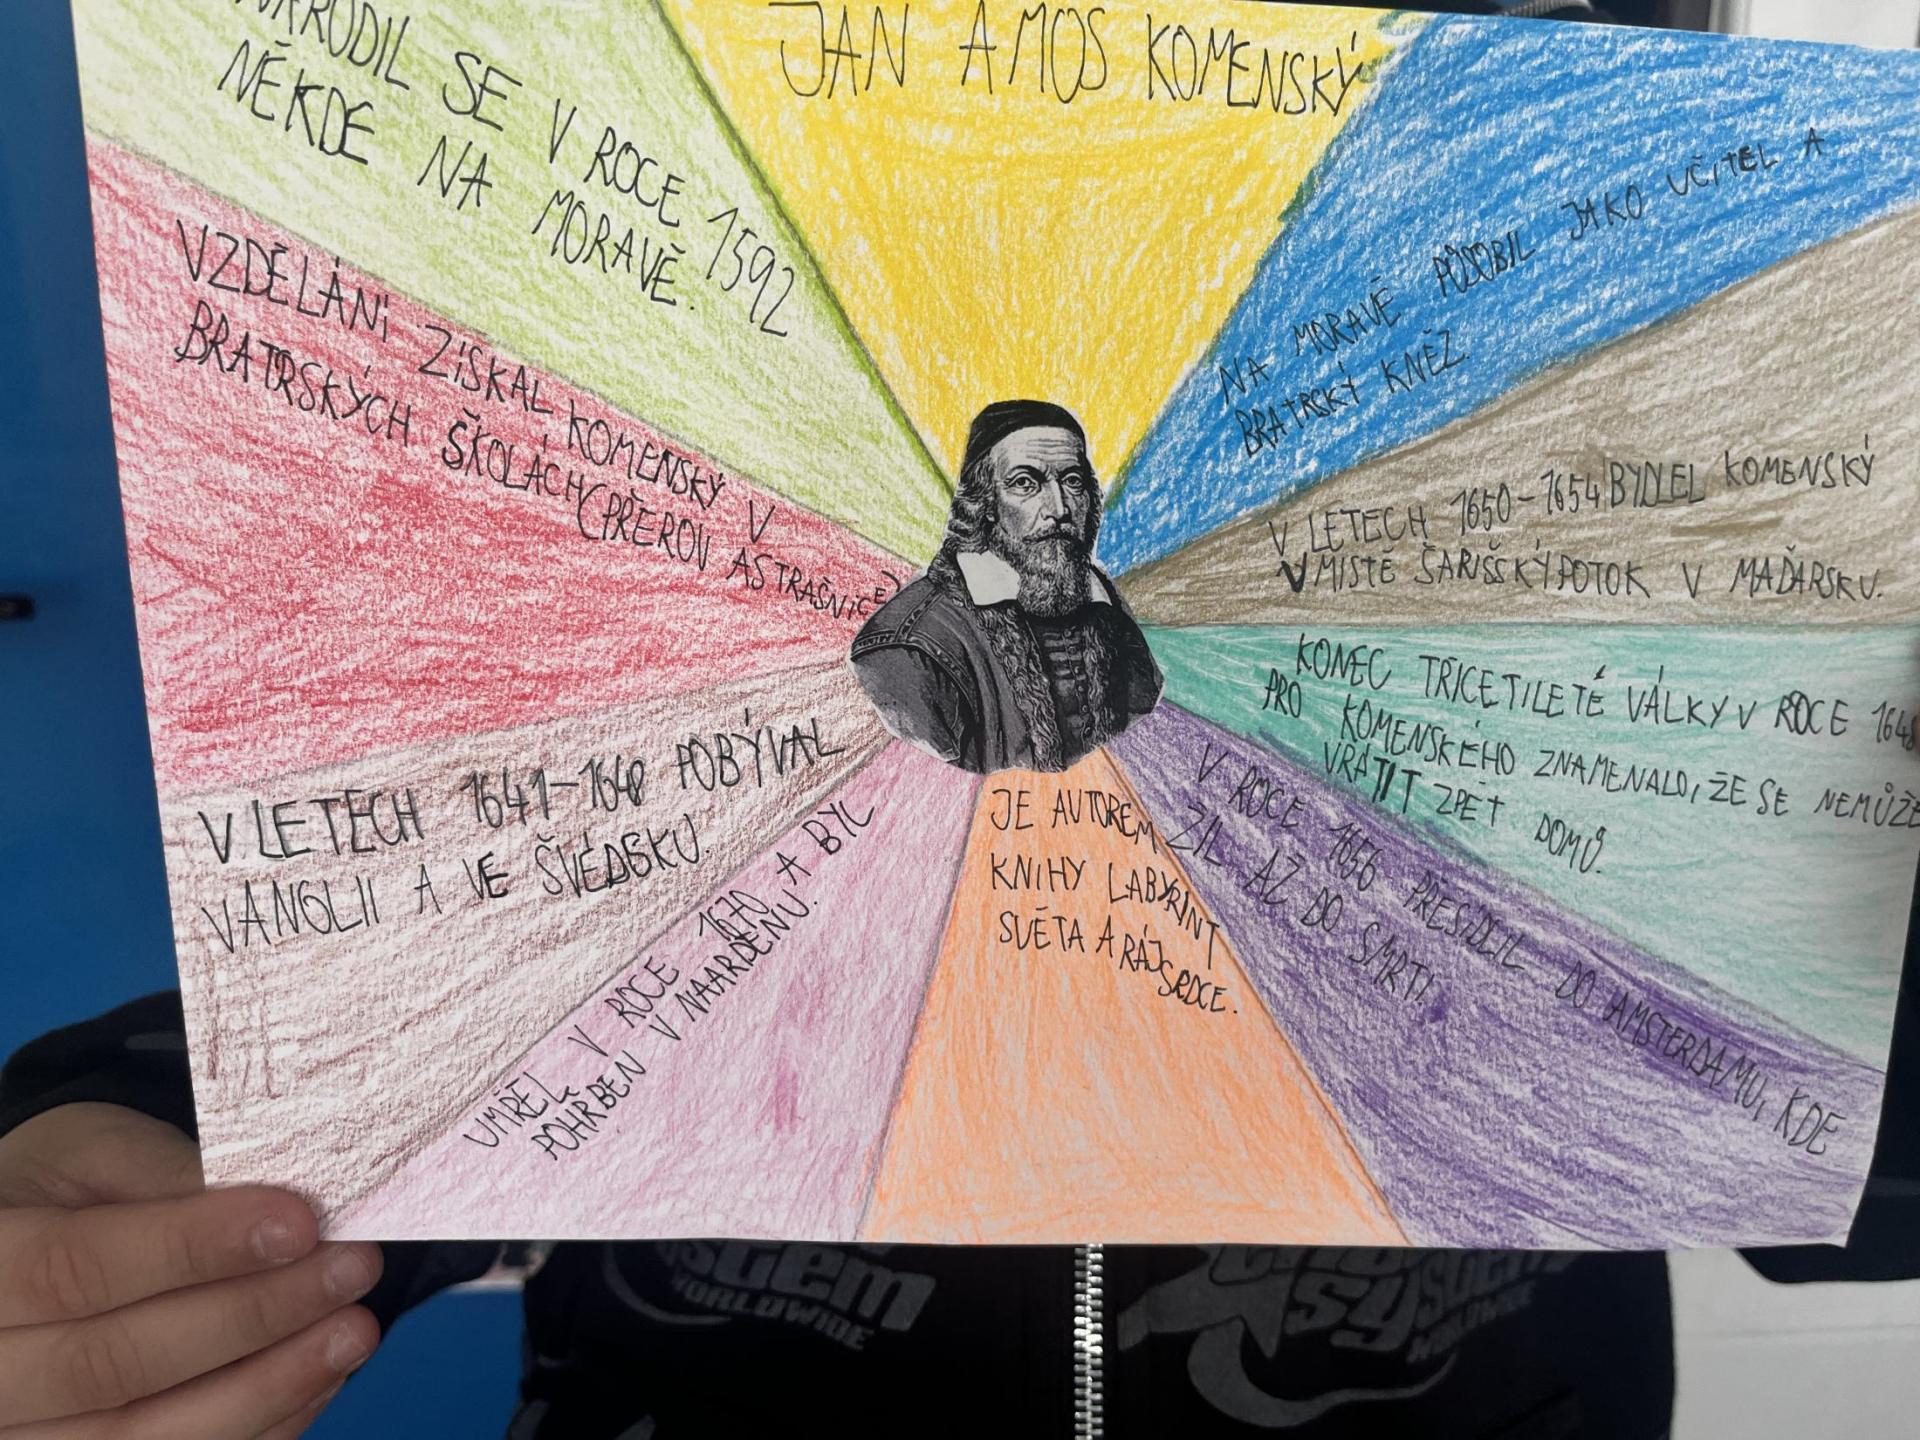 JAN AMOS KOMENSKÝ
NARODIL SE V ROCE 1592
NĚKDE NA MORAVĚ.
VZDĚLÁNI ZÍSKAL KOMENSKÝ V
BRATRSKÝCH ŠKOLÁCH (PŘEROV A STRAŠNICE)
V LETECH 1641-1648 POBÝVAL
V ANGLII A VE ŠVÉDSKU.
UMŘEL V ROCE 1670 A BYL
POHŘBEN V NAARDENU.
JE AUTOREM
KNIHY LABYRINT
SVĚTA A RÁJ
SRDCE.
V ROCE 1656 PŘESÍDLIL DO AMSTERDAMU, KDE
ŽIL AŽ DO SMRTI.
KONEC TŘICETILETÉ VÁLKY V ROCE 1648
PRO KOMENSKÉHO ZNAMENALO, ŽE SE NEMŮŽE
VRÁTIT ZPĚT DOMŮ.
V LETECH 1650-1654 BYDLEL KOMENSKÝ
V MISTĚ ŠARIŠSKÝ POTOK V MAĎARSKU.
NA MORAVĚ PŮSOBIL JAKO UČITEL A
BRATRSKÝ KNĚZ.
WORLDWIDE
system
WORLDWIDE